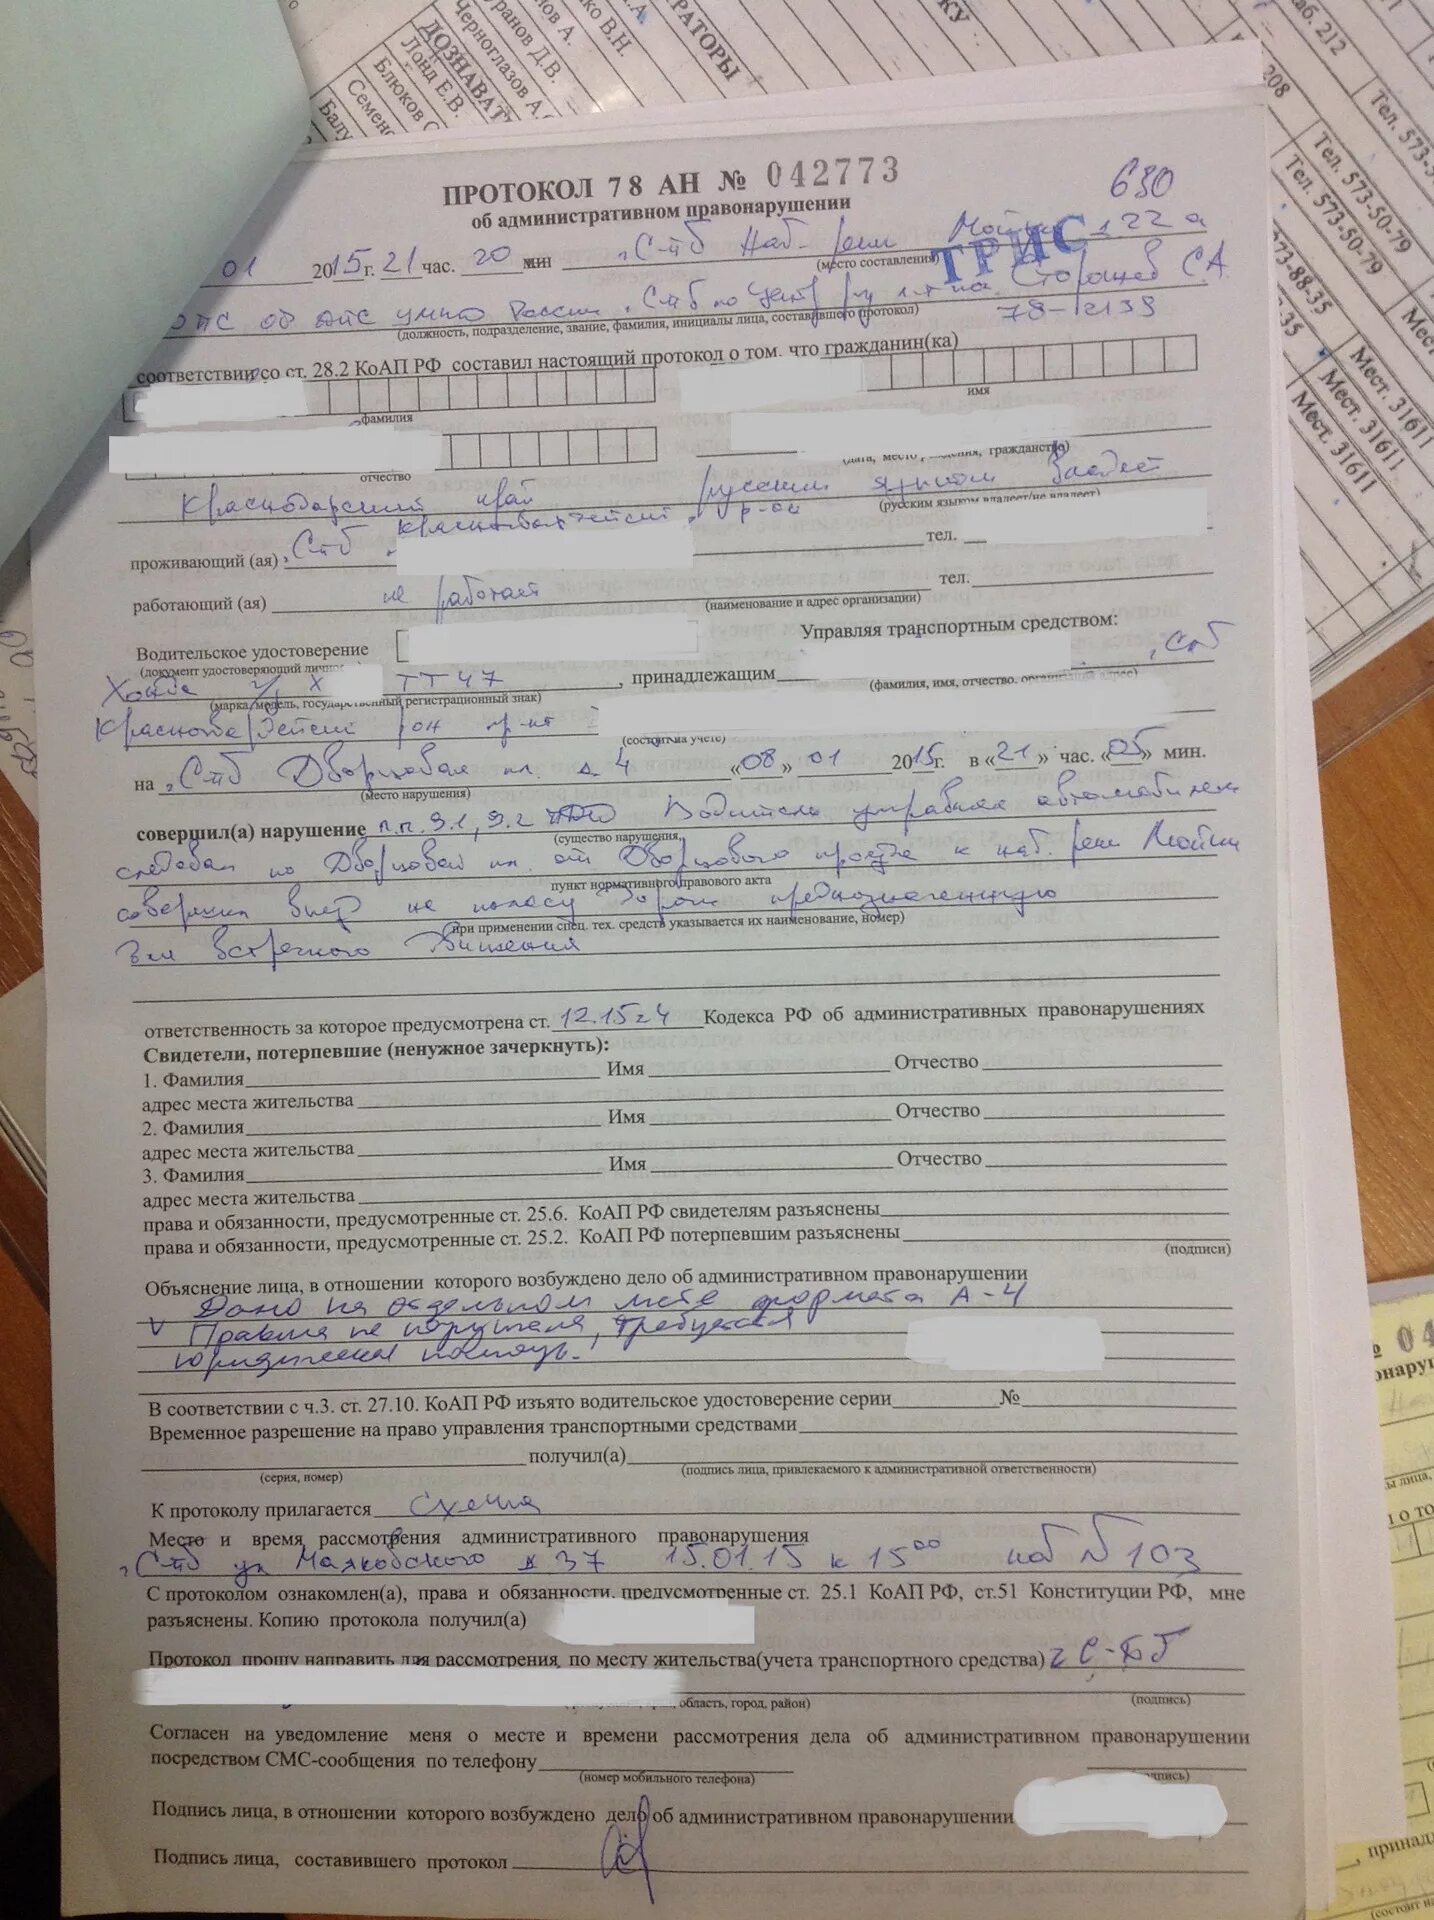 РАТОРЫ
КУ
аб. 212
208
нов А.
ко В.Н.
уранов Д.В.
Черноглазов А.
ДОЗНАВАТ
Лонд Е.В.
Блюков С
Семен
Балу
Тел. 573-5
Тел. 573-50-79
Тел. 573-50-79
573-88-35
-35
Мест
Мест. 31611
Мест. 31611
Мест. 31611
ПРОТОКОЛ 78 АН № 042773
630
об административном правонарушении
ТРИС
01 2015г. 21 час. 20 мин г. СПб Наб. реки Мойки 122 а
(место составления)
ДПС ОБ ДПС УМВД России г. СПб по Центр р-ну Сторащев С.А.
(должность, подразделение, звание, фамилия, инициалы лица, составившего протокол)
соответствии со ст. 28.2 КоАП РФ составил настоящий протокол о том, что гражданин(ка)
фамилия
имя
отчество
(дата, место рождения, гражданство)
Краснодарский край русским языком владеет
(русским языком владеет/не владеет)
проживающий (ая) г. СПб Красногвардейский р-он тел.
работающий (ая) не работает тел.
(наименование и адрес организации)
Водительское удостоверение
Управляя транспортным средством:
(документ удостоверяющий личн
Хонда г/з Х ТТ 47, принадлежащим г. СПб
(марка, модель, государственный регистрационный знак)
(фамилия, имя, отчество, организация адрес)
Красногвардейский р-он пр-кт
(состоит на учете)
на г. СПб Дворцовая пл. д 4 «08» 01 2015г. в «21» час. «05» мин.
(место нарушения)
совершил(а) нарушение п.п. 9.1, 9.2 ПДД Водитель управляя автомобилем
(существо нарушения,
следовал по Дворцовой пл. от Дворцового проезда к наб. реки Мойки
пункт нормативного правового акта
совершил выезд на полосу дороги предназначенную
при применении спец. тех. средств указывается их наименование, номер)
для встречного движения
ответственность за которое предусмотрена ст. 12.15 ч 4 Кодекса РФ об административных правонарушениях
Свидетели, потерпевшие (ненужное зачеркнуть):
1. Фамилия Имя Отчество
адрес места жительства
2. Фамилия Имя Отчество
адрес места жительства
3. Фамилия Имя Отчество
адрес места жительства
права и обязанности, предусмотренные ст. 25.6. КоАП РФ свидетелям разъяснены
права и обязанности, предусмотренные ст. 25.2. КоАП РФ потерпевшим разъяснены
(подписи)
Объяснение лица, в отношении которого возбуждено дело об административном правонарушении
Дано на отдельном листе формата А-4
V Правила не нарушала, требуется
юридическая помощь.
В соответствии с ч.3. ст. 27.10. КоАП РФ изъято водительское удостоверение серии №
Временное разрешение на право управления транспортными средствами
получил(а)
(серия, номер)
(подпись лица, привлекаемого к административной ответственности)
К протоколу прилагается Схема
Место и время рассмотрения административного правонарушения
г. СПб ул Маяковского д 37 15.01.15 к 15 00 каб № 103
С протоколом ознакомлен(а), права и обязанности, предусмотренные ст. 25.1 КоАП РФ, ст.51 Конституции РФ, мне
разъяснены. Копию протокола получил(а)
Протокол прошу направить для рассмотрения по месту жительства(учета транспортного средства) г С-Пб
область, город, район)
(подпись)
Согласен на уведомление меня о месте и времени рассмотрения дела об административном правонарушении
посредством СМС-сообщения по телефону
(номер мобильного телефона)
Подпись лица, в отношении которого возбуждено дело об административном правонарушении
Подпись лица, составившего протокол
№ 04
онаруш
ы лица,
о то
, принад
(состоит на